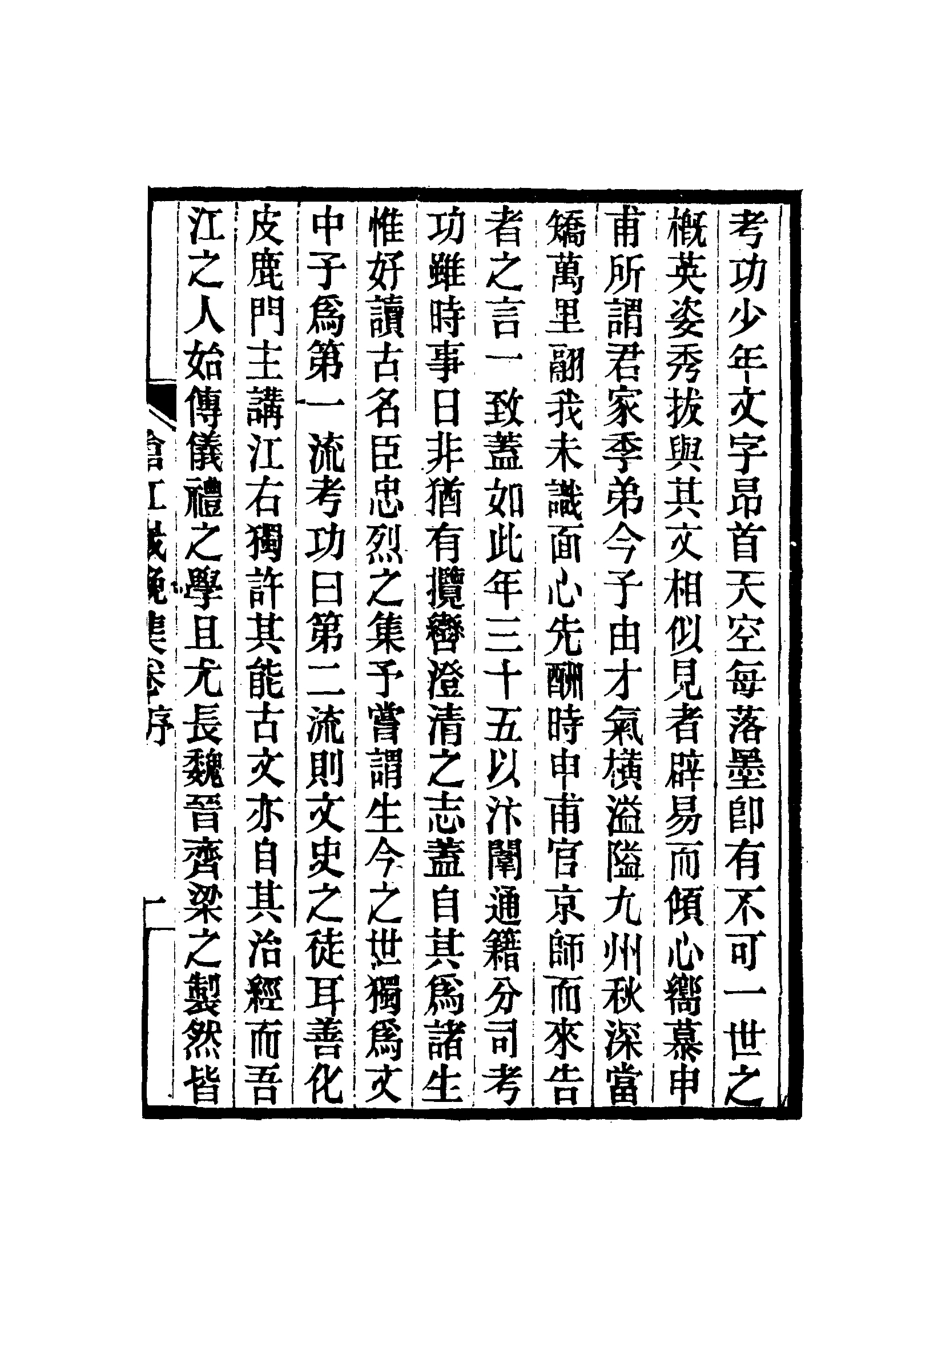 考功少年文字昂首天空每落墨卽有不可一世之
槪英姿秀拔與其文相似見者辟易而傾心嚮慕申
甫所謂君家季弟今子由才氣橫溢隘九州秋深當
矯萬里翮我未識面心先酬時申甫官京師而來告
者之言一致蓋如此年三十五以汴闈通籍分司考
功雖時事日非猶有攬轡澄清之志蓋自其爲諸生
惟好讀古名臣忠烈之集予嘗謂生今之世獨爲文
中子爲第一流考功曰第二流則文史之徒耳善化
皮鹿門主講江右獨許其能古文亦自其治經而吾
江之人始傳儀禮之學且尤長魏晉齊梁之製然皆
滄江歲晚集卷序
一